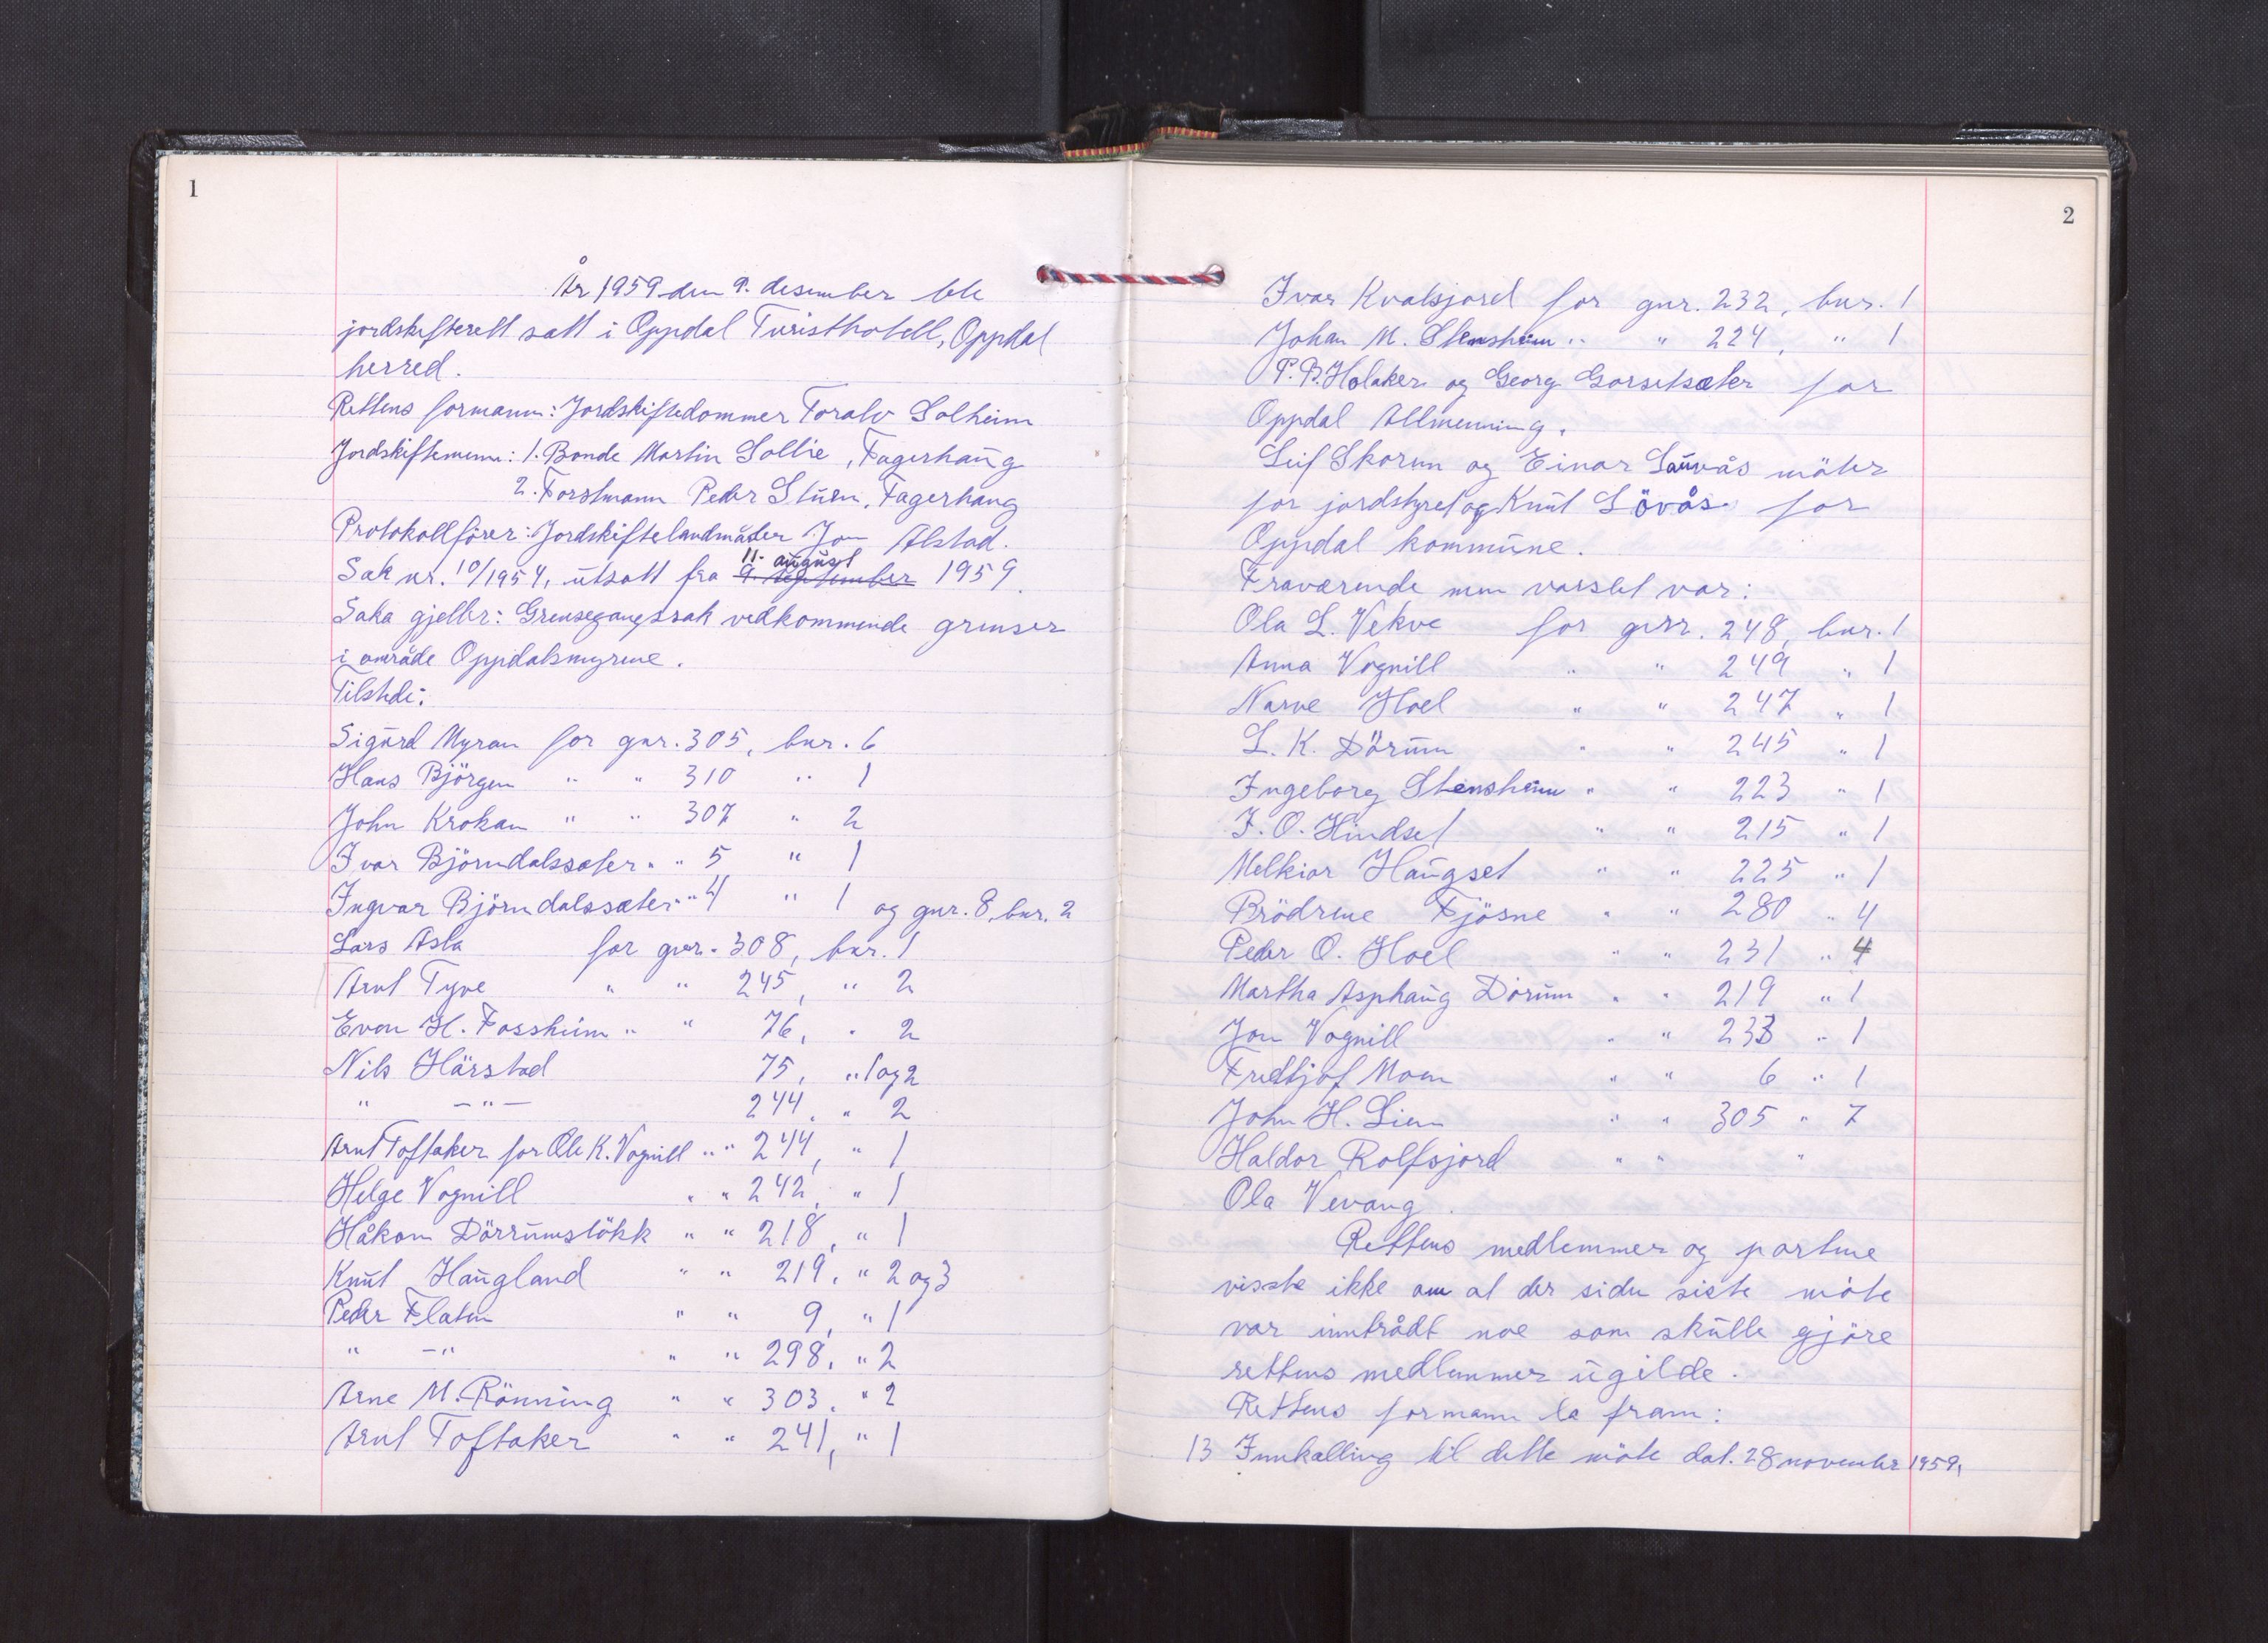 1
År 1959 den 9. desember ble
jordskifterett satt i Oppdal Turisthotell, Oppdal
herred.
Rettens formann: Jordskiftedommer Toralv Solheim
Jordskiftemenn: 1. Bonde Martin Sollie, Fagerhaug
2. Forstmann Peder Stuen, Fagerhaug
Protokollförer: Jordskiftelandmåler Jon Alstad.
11. august
Sak nr. 10/1954, utsatt fra 9. september 1959.
Saka gjelder: Grensegangssak vedkommende grenser
i område Oppdalsmyrene.
Tilstede:
Sigurd Myran for gnr. 305, bnr. 6
Hans Björgen " " 310 " 1
John Krokan " " 307 " 2
Ivar Björndalssæter " " 5 " 1
Ingvar Björndalssæter " " 4 " 1 og gnr. 8, bnr. 2
Lars Asla for gnr. 308, bnr. 1
Arnt Tyve " " 245, " 2
Even H. Fossheim " " 76, " 2
Nils Hårstad 75, " 1 og 2
" — " — 244, " 2
Arnt Toftaker for Ole K. Vognill " " 244, " 1
Helge Vognill " " 242, " 1
Håkon Dörrumslökk " " 218, " 1
Knut Haugland " " 219, " 2 og 3
Peder Flaten " " 9, " 1
" — " " " 298, " 2
Arne M. Rönning " " 303, " 2
Arnt Toftaker " " 241, " 1
2
Ivar Kvalsjord for gnr. 232, bnr. 1
Johan M. Stensheim " " 224, " 1
P. B. Holaker og Georg Gorsetsæter for
Oppdal Allmenning.
Leif Skorem og Einar Sauvås möter
for jordstyret og Knut Lövås for
Oppdal kommune.
Fraværende men varslet var:
Ola L. Vekve for gnr. 248, bnr. 1
Anna Vognill " " 249 " 1
Narve Hoel " " 247 " 1
L. K. Dörum " " 245 " 1
Ingeborg Stensheim " " 223 " 1
I. O. Hindset " " 215 " 1
Melkior Haugset " " 225 " 1
Brödrene Fjösne " " 280 " 4
Peder O. Hoel " " 231 " 4
Martha Asphaug Dörum " " 219 " 1
Jon Vognill " " 233 " 1
Fredtjof Moen " " 6 " 1
John H. Lien " " 305 " 7
Haldor Rolfsjord " " "
Ola Vevang.
Rettens medlemmer og partene
visste ikke om at der siden siste möte
var inntrådt noe som skulle gjöre
rettens medlemmer ugilde.
Rettens formann la fram:
13 Innkalling til dette möte dat. 28 november 1959,